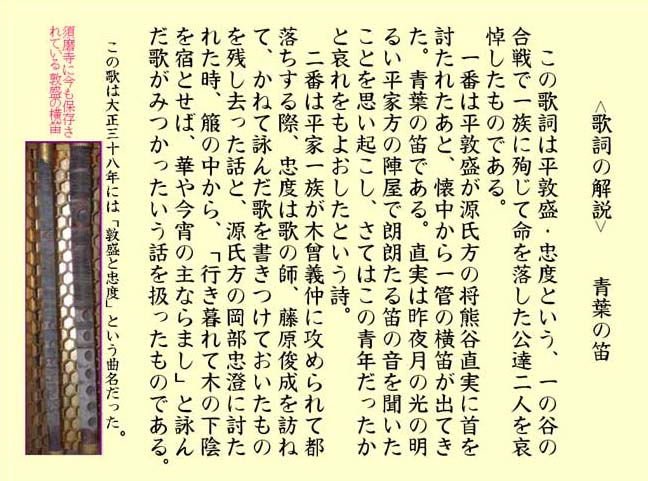 <歌詞の解説>　　青葉の笛
この歌詞は平敦盛・忠度という、一の谷の
合戦で一族に殉じて命を落した公達二人を哀
悼したものである。
一番は平敦盛が源氏方の将熊谷直実に首を
討たれたあと、懐中から一管の横笛が出てき
た。青葉の笛である。直実は昨夜月の光の明
るい平家方の陣屋で朗朗たる笛の音を聞いた
ことを思い起こし、さてはこの青年だったか
と哀れをもよおしたという詩。
二番は平家一族が木曾義仲に攻められて都
落ちする際、忠度は歌の師、藤原俊成を訪ね
て、かねて詠んだ歌を書きつけておいたもの
を残し去った話と、源氏方の岡部忠澄に討た
れた時、箙の中から、「行き暮れて木の下陰
を宿とせば、華や今宵の主ならまし」と詠ん
だ歌がみつかったいう話を扱ったものである。
この歌は大正三十八年には「敦盛と忠度」という曲名だった。
須磨寺に今も保存さ
れている敦盛の横笛